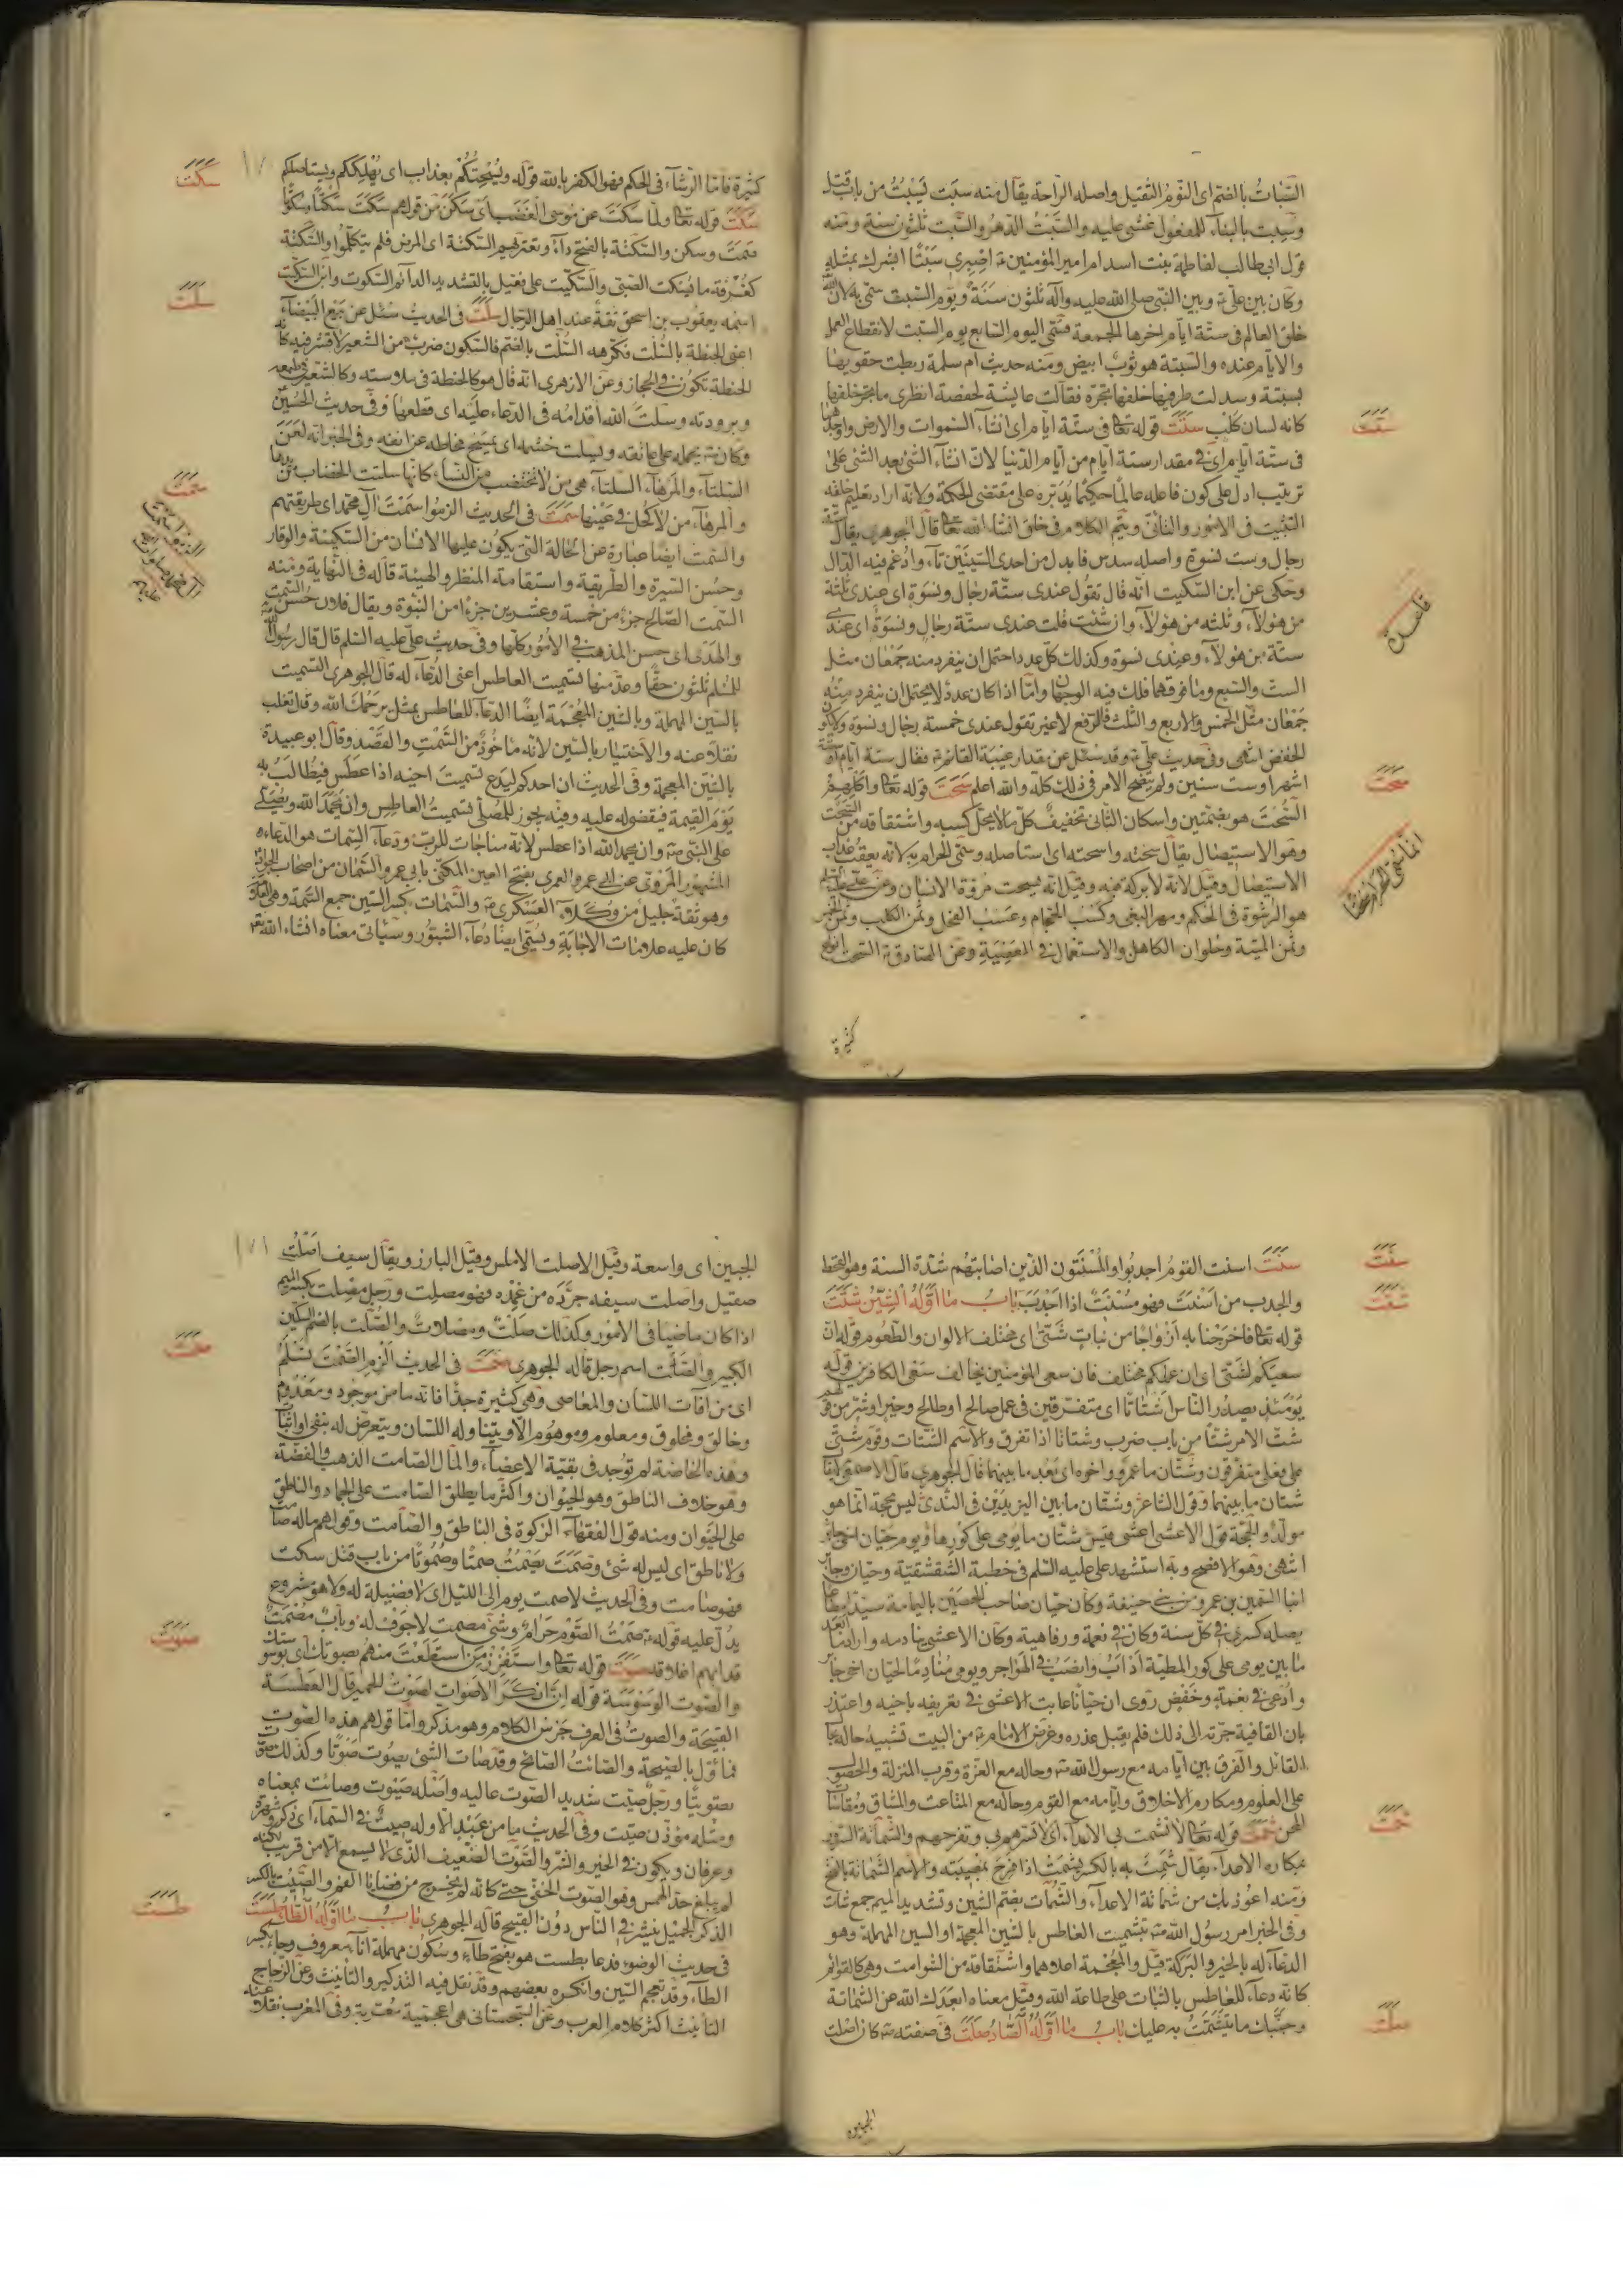 السبات بالضم اى النوم الثقيل واصله الراحة يقال منه سبت يسبت من باب قتل
وسبت بالبناء للمفعول غشى عليه والسبت الدهر والسبت ثلثون سنة ومنه
قول ابى طالب لفاطمة بنت اسد ام امير المؤمنين اصبرى سبتا ابشرك بمثله
وكان بين على وبين النبى صلى الله عليه وآله ثلثون سنة ويوم السبت سمى به لان الله
خلق العالم فى ستة ايام اخرها الجمعة فسمى اليوم السابع يوم السبت لانقطاع العمل
والايام عنده والسبتة هو ثوب ابيض ومنه حديث ام سلمة ربطت حقويها
بسبتة وسدلت طرفيها خلفها تجره فقالت عايشة لحفصة انظرى ما تجر خلفها
كانه لسان كلب ستت قوله تعالى فى ستة ايام اى انشاء السموات والارض
فى ستة ايام اى فى مقدار ستة ايام من ايام الدنيا لان انشاء الشئ بعد الشئ على
ترتيب ادل على كون فاعله عالما حكيما يدبره على مقتضى الحكمة ولانه اراد تعليم خلقه
التثبت فى الامور والتانى ويتم الكلام فى خلق انشاء الله تعالى قال الجوهرى يقال ستة
رجال وست نسوة واصله سدس فابدل من احدى السينين تاء وادغم فيه الدال
وحكى عن ابن السكيت انه قال تقول عندى ستة رجال ونسوة اى عندى ثلثة
من هؤلاء وثلثه من هؤلاء وان شئت قلت عندى ستة رجال ونسوة اى عندى
ستة من هؤلاء وعندى نسوة وكذلك كل عدد احتمل ان ينفرد منه جمعان مثل
الست والسبع وما فوقهما فلك فيه الوجهان واما اذا كان عدد لا يحتمل ان ينفرد منه
جمعان مثل الخمس والاربع والثلث فالرفع لا غير تقول عندى خمسة رجال ونسوة ولا يكون
الخفض انتهى وفى حديث على وقد سئل عن مقدار غيبة القائم فقال ستة ايام او ستة
اشهر او ست سنين ولم يتضح الامر فى ذلك كله والله اعلم سحت قوله تعالى واكلهم
السحت هو بضمتين واسكان الثانى تخفيف كل مالا يحل كسبه واشتقاقه من السحت
وهو الاستيصال يقال سحته واسحته اى استاصله وسمى الحرام به لانه يعقب عذاب
الاستيصال وقيل لانه لا بركة فيه وقيل انه يسحت مروة الانسان وعن على عليه السلم
هو الرشوة فى الحكم ومهر البغى وكسب الحجام وعسب الفحل وثمن الكلب وثمن الخمر
وثمن الميتة وحلوان الكاهن والاستعمال فى المعصية وعن الصادق السحت انواع
كثيرة
ستت
سحت
كثيرة فاما الرشاء فى الحكم فهو الكفر بالله قوله ويسحتكم بعذاب اى يهلككم ويستاصلكم
سكت قوله تعالى ولما سكت عن موسى الغضب اى سكن من قولهم سكت سكتا وسكوتا
صمت وسكن والسكتة بالفتح داء وتعتريهم السكتة اى المرض فلم يتكلموا والسكتة
كغرفة ما يسكت الصبى والسكيت على فعيل بالتشديد الدائم السكوت وابن السكيت
اسمه يعقوب بن اسحق ثقة عند اهل الرجال سلت فى الحديث سئل عن بيع البيضاء
اعنى الحنطة بالسلت فكرهه السلت بالضم فالسكون ضرب من الشعير لا قشر فيه كانه
الحنطة تكون فى الحجاز وعن الازهرى انه قال هو كالحنطة فى ملاسته وكالشعير فى طبعه
وبرودته وسلت الله اقدامه فى الدعاء عليه اى قطعها وفى حديث الحسين
وكان يحمله على عاتقه ويسلت خشمه اى يمسح مخاطه عن انفه وفى الخبر انه لعن
السلتاء والمرهاء السلتاء هى من لا تختضب من النساء كانها سلتت الخضاب عن يدها
والمرهاء من لا كحل فى عينها سمت فى الحديث الزموا سمت آل محمد اى طريقتهم
والسمت ايضا عبارة عن الحالة التى يكون عليها الانسان من السكينة والوقار
وحسن السيرة والطريقة واستقامة المنظر والهيئة قاله فى النهاية ومنه
السمت الصالح جزء من خمسة وعشرين جزءا من النبوة ويقال فلان حسن السمت
والهدى اى حسن المذهب فى الامور كلها وفى حديث على عليه السلم قال قال رسول الله
للمسلم ثلثون حقا وعد منها تسميت العاطس اعنى الدعاء له قال الجوهرى التسميت
بالسين المهملة وبالشين المعجمة ايضا الدعاء للعاطس بمثل يرحمك الله وقال ثعلب
نقلا عنه والاختيار بالسين لانه ماخوذ من السمت والقصد وقال ابو عبيدة
بالشين المعجمة وفى الحديث ان احدكم ليدع تسميت اخيه اذا عطس فيطالب به
يوم القيمة فيقضى له عليه وفيه يجوز للمصلى تسميت العاطس وان يحمد الله ويصلى
على النبى وان يحمد الله اذا عطس لانه مناجات للرب ودعاء السمات هو الدعاء
المشهور المروى عن ابى عمرو العمرى بفتح العين المكنى بابى عمرو السمان من اصحاب
وهو ثقة جليل من وكلاء العسكرى والسمات بكسر السين جمع السمة وهى العلامة
كان عليه علامات الاجابة ويسمى ايضا دعاء الشبور وسياتى معناه انشاء الله تعالى
سكت
سلت
سمت
سنت اسنت القوم اجدبوا والمسنتون الذين اصابتهم شدة السنة وهو القحط
والجدب من اسنت فهو مسنت اذا اجدب باب ما اوله الشين شتت
قوله تعالى فاخرجنا به ازواجا من نبات شتى اى مختلف الالوان والطعوم قوله ان
سعيكم لشتى اى ان عملكم مختلف فان سعى المؤمنين يخالف سعى الكافرين قوله
يومئذ يصدر الناس اشتاتا اى متفرقين فى عمل صالح او طالح وخير او شر من قولهم
شت الامر شتا من باب ضرب وشتاتا اذا تفرق والاسم الشتات وقوم شتى
على فعلى متفرقون وشتان ما عمرو واخوه اى بعد ما بينهما قال الجوهرى قال الاصمعى لا يقال
شتان ما بينهما وقول الشاعر وشتان ما بين اليزيدين فى الندى ليس بحجة انما هو
مولد والحجة قول الاعشى اعشى قيس شتان ما يومى على كورها ويوم حيان اخى جابر
انتهى وهو الافصح وبه استشهد على عليه السلم فى خطبة الشقشقية وحيان وجابر
ابنا السمين بن عمرو من بنى حنيفة وكان حيان صاحب الحصين باليمامة سيدا مطاعا
يصله كسرى فى كل سنة وكان فى نعمة ورفاهية وكان الاعشى ينادمه واراد بعد
ما بين يومى على كور المطية اداب وانصب فى الهواجر ويومى منادما لحيان اخى جابر
وادعى فى نعمة وخفض روى ان حيانا عاتب الاعشى فى تعريفه باخيه واعتذر
بان القافية جرته الى ذلك فلم يقبل عذره وغرض الامام من البيت تشبيه حاله بحال
القائل والفرق بين ايامه مع رسول الله وحاله مع العزة وقرب المنزلة والحصول
على العلوم ومكارم الاخلاق وايامه مع القوم وحاله مع المتاعب والمشاق ومقاساة
المحن شمت قوله تعالى لا تشمت بى الاعداء اى لا تسرهم بى وتفرحهم والشماتة السرور
بمكاره الاعداء يقال شمت به بالكسر يشمت اذا فرح بمصيبته والاسم الشماتة بالفتح
ومنه اعوذ بك من شماتة الاعداء والشمات بضم الشين وتشديد الميم جمع شامت
وفى الخبر امر رسول الله بتشميت العاطس بالشين المعجمة او السين المهملة وهو
الدعاء له بالخير والبركة قيل والمعجمة اعلاهما واشتقاقه من الشوامت وهى كالقوائم
كانه دعاء للعاطس بالثبات على طاعة الله وقيل معناه ابعدك الله عن الشماتة
وجنبك ما يتشمت به عليك باب ما اوله الصاد صلت فى صفته كان اصلت
الجبين
سنت
شتت
شمت
صلت
الجبين اى واسعة وقيل الاصلت الاملس وقيل البارز ويقال سيف اصلت
صقيل واصلت سيفه جرده من غمده فهو مصلت ورجل مصلت بكسر الميم
اذا كان ماضيا فى الامور وكذلك صلت ومصلات والصلت بالضم السكين
الكبير والصلت اسم رجل قاله الجوهرى صمت فى الحديث الزم الصمت تسلم
اى من آفات اللسان والمعاصى وهى كثيرة جدا فانه ما من موجود ومعدوم
وخالق ومخلوق ومعلوم وموهوم الا ويتناوله اللسان ويتعرض له بنفى او اثبات
وهذه الخاصة لم توجد فى بقية الاعضاء والمال الصامت الذهب والفضة
وهو خلاف الناطق وهو الحيوان واكثر ما يطلق الصامت على الجماد والناطق
على الحيوان ومنه قول الفقهاء الزكوة فى الناطق والصامت وقولهم ماله صامت
ولا ناطق اى ليس له شئ وصمت يصمت صمتا وصموتا من باب قتل سكت
فهو صامت وفى الحديث لا صمت يوم الى الليل اى لا فضيلة له ولا هو مشروع
يدل عليه قوله صمت الصوم حرام وشئ مصمت لا جوف له وباب مصمت
قد ابهم اغلاقه صوت قوله تعالى واستفزز من استطعت منهم بصوتك اى بوسوستك
والصوت الوسوسة قوله ان انكر الاصوات لصوت الحمير قال العطسة
القبيحة والصوت فى العرف جرس الكلام وهو مذكر واما قولهم هذه الصوت
فماؤل بالصيحة والصائت الصائح وقد صات الشئ يصوت صوتا وكذلك صوت
تصويتا ورجل صيت شديد الصوت عاليه واصله صيوت وصائت بمعناه
ومثله مؤذن صيت وفى الحديث ما من عبد الا وله صيت فى السماء اى ذكر وشهرة
وعرفان ويكون فى الخير والشر والصوت الضعيف الذى لا يسمع الا من قريب لكنه
لم يبلغ حد الهمس وهو الصوت الخفى حتى كانه لم يخرج من فضاء الفم والصيت بالكسر
الذكر الجميل ينشر فى الناس دون القبيح قاله الجوهرى باب ما اوله الطاء طست
فى حديث الوضوء فدعا بطست هو بفتح طاء وسكون مهملة اناء معروف وجاء بكسر
الطاء وقد تعجم السين وانكره بعضهم وقد نقل فيه التذكير والتانيث وعن الزجاج
التانيث اكثر كلام العرب وعن السجستانى هى اعجمية معربة وفى المغرب نقلا عنه
صمت
صوت
طست